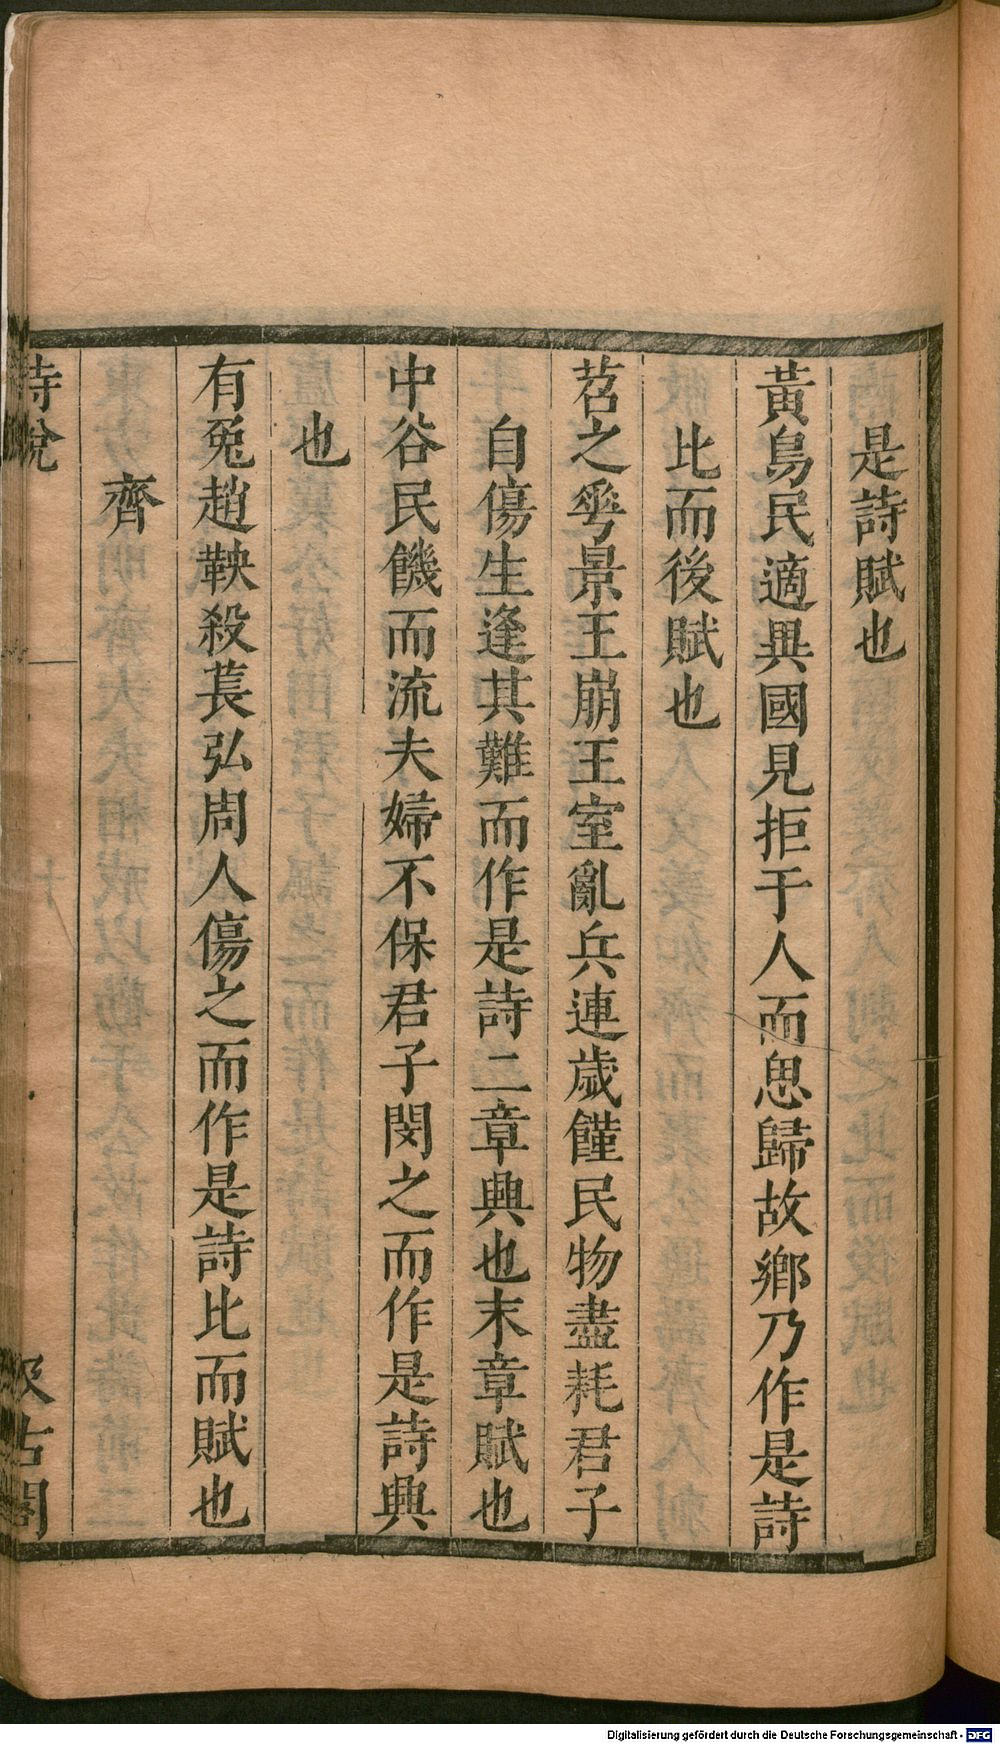 是詩賦也
黃鳥民適異國見拒于人而思歸故鄉乃作是詩
比而後賦也
苕之華景王崩王室亂兵連歲饉民物盡耗君子
自傷生逢其難而作是詩二章興也末章賦也
中谷民饑而流夫婦不保君子閔之而作是詩興
也
有兔趙鞅殺萇弘周人傷之而作是詩比而賦也
齊
詩說
汲古閣
Digitalisierung gefördert durch die Deutsche Forschungsgemeinschaft - DFG